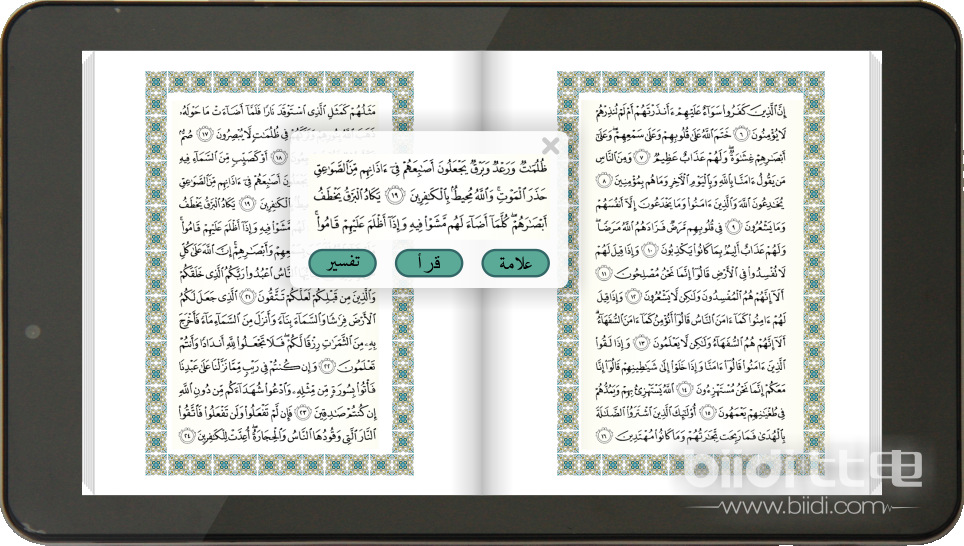 إِنَّ ٱلَّذِينَ كَفَرُوا۟ سَوَآءٌ عَلَيْهِمْ ءَأَنذَرْتَهُمْ أَمْ لَمْ تُنذِرْهُمْ
لَا يُؤْمِنُونَ ٦ خَتَمَ ٱللَّهُ عَلَىٰ قُلُوبِهِمْ وَعَلَىٰ سَمْعِهِمْ ۖ وَعَلَىٰٓ
أَبْصَٰرِهِمْ غِشَٰوَةٌ ۖ وَلَهُمْ عَذَابٌ عَظِيمٌ ٧ وَمِنَ ٱلنَّاسِ
مَن يَقُولُ ءَامَنَّا بِٱللَّهِ وَبِٱلْيَوْمِ ٱلْءَاخِرِ وَمَا هُم بِمُؤْمِنِينَ ٨
يُخَٰدِعُونَ ٱللَّهَ وَٱلَّذِينَ ءَامَنُوا۟ وَمَا يَخْدَعُونَ إِلَّآ أَنفُسَهُمْ
وَمَا يَشْعُرُونَ ٩ فِى قُلُوبِهِم مَّرَضٌ فَزَادَهُمُ ٱللَّهُ مَرَضًا ۖ
وَلَهُمْ عَذَابٌ أَلِيمٌۢ بِمَا كَانُوا۟ يَكْذِبُونَ ١٠ وَإِذَا قِيلَ لَهُمْ
لَا تُفْسِدُوا۟ فِى ٱلْأَرْضِ قَالُوٓا۟ إِنَّمَا نَحْنُ مُصْلِحُونَ ١١
أَلَآ إِنَّهُمْ هُمُ ٱلْمُفْسِدُونَ وَلَٰكِن لَّا يَشْعُرُونَ ١٢ وَإِذَا قِيلَ
لَهُمْ ءَامِنُوا۟ كَمَآ ءَامَنَ ٱلنَّاسُ قَالُوٓا۟ أَنُؤْمِنُ كَمَآ ءَامَنَ ٱلسُّفَهَآءُ ۗ
أَلَآ إِنَّهُمْ هُمُ ٱلسُّفَهَآءُ وَلَٰكِن لَّا يَعْلَمُونَ ١٣ وَإِذَا لَقُوا۟
ٱلَّذِينَ ءَامَنُوا۟ قَالُوٓا۟ ءَامَنَّا وَإِذَا خَلَوْا۟ إِلَىٰ شَيَٰطِينِهِمْ قَالُوٓا۟ إِنَّا
مَعَكُمْ إِنَّمَا نَحْنُ مُسْتَهْزِءُونَ ١٤ ٱللَّهُ يَسْتَهْزِئُ بِهِمْ وَيَمُدُّهُمْ
فِى طُغْيَٰنِهِمْ يَعْمَهُونَ ١٥ أُو۟لَٰٓئِكَ ٱلَّذِينَ ٱشْتَرَوُا۟ ٱلضَّلَٰلَةَ
بِٱلْهُدَىٰ فَمَا رَبِحَت تِّجَٰرَتُهُمْ وَمَا كَانُوا۟ مُهْتَدِينَ ١٦
مَثَلُهُمْ كَمَثَلِ ٱلَّذِى ٱسْتَوْقَدَ نَارًا فَلَمَّآ أَضَآءَتْ مَا حَوْلَهُۥ
فِى ظُلُمَٰتٍ لَّا يُبْصِرُونَ ١٧ صُمٌّۢ
١٨ أَوْ كَصَيِّبٍ مِّنَ ٱلسَّمَآءِ فِيهِ
أَصَٰبِعَهُمْ فِىٓ ءَاذَانِهِم مِّنَ ٱلصَّوَٰعِقِ
١٩ يَكَادُ ٱلْبَرْقُ يَخْطَفُ
مَّشَوْا۟ فِيهِ وَإِذَآ أَظْلَمَ عَلَيْهِمْ قَامُوا۟ ۚ
وَأَبْصَٰرِهِمْ ۚ إِنَّ ٱللَّهَ عَلَىٰ كُلِّ
ٱلنَّاسُ ٱعْبُدُوا۟ رَبَّكُمُ ٱلَّذِى خَلَقَكُمْ
وَٱلَّذِينَ مِن قَبْلِكُمْ لَعَلَّكُمْ تَتَّقُونَ ٢١ ٱلَّذِى جَعَلَ لَكُمُ
ٱلْأَرْضَ فِرَٰشًا وَٱلسَّمَآءَ بِنَآءً وَأَنزَلَ مِنَ ٱلسَّمَآءِ مَآءً فَأَخْرَجَ
بِهِۦ مِنَ ٱلثَّمَرَٰتِ رِزْقًا لَّكُمْ ۖ فَلَا تَجْعَلُوا۟ لِلَّهِ أَندَادًا وَأَنتُمْ
تَعْلَمُونَ ٢٢ وَإِن كُنتُمْ فِى رَيْبٍ مِّمَّا نَزَّلْنَا عَلَىٰ عَبْدِنَا
فَأْتُوا۟ بِسُورَةٍ مِّن مِّثْلِهِۦ وَٱدْعُوا۟ شُهَدَآءَكُم مِّن دُونِ ٱللَّهِ
إِن كُنتُمْ صَٰدِقِينَ ٢٣ فَإِن لَّمْ تَفْعَلُوا۟ وَلَن تَفْعَلُوا۟ فَٱتَّقُوا۟
ٱلنَّارَ ٱلَّتِى وَقُودُهَا ٱلنَّاسُ وَٱلْحِجَارَةُ ۖ أُعِدَّتْ لِلْكَٰفِرِينَ ٢٤
ظُلُمَٰتٌ وَرَعْدٌ وَبَرْقٌ يَجْعَلُونَ أَصَٰبِعَهُمْ فِىٓ ءَاذَانِهِم مِّنَ ٱلصَّوَٰعِقِ
حَذَرَ ٱلْمَوْتِ ۚ وَٱللَّهُ مُحِيطٌۢ بِٱلْكَٰفِرِينَ ١٩ يَكَادُ ٱلْبَرْقُ يَخْطَفُ
أَبْصَٰرَهُمْ ۖ كُلَّمَآ أَضَآءَ لَهُم مَّشَوْا۟ فِيهِ وَإِذَآ أَظْلَمَ عَلَيْهِمْ قَامُوا۟ ۚ
علامة قرأ تفسير
biidi 比电
www.biidi.com